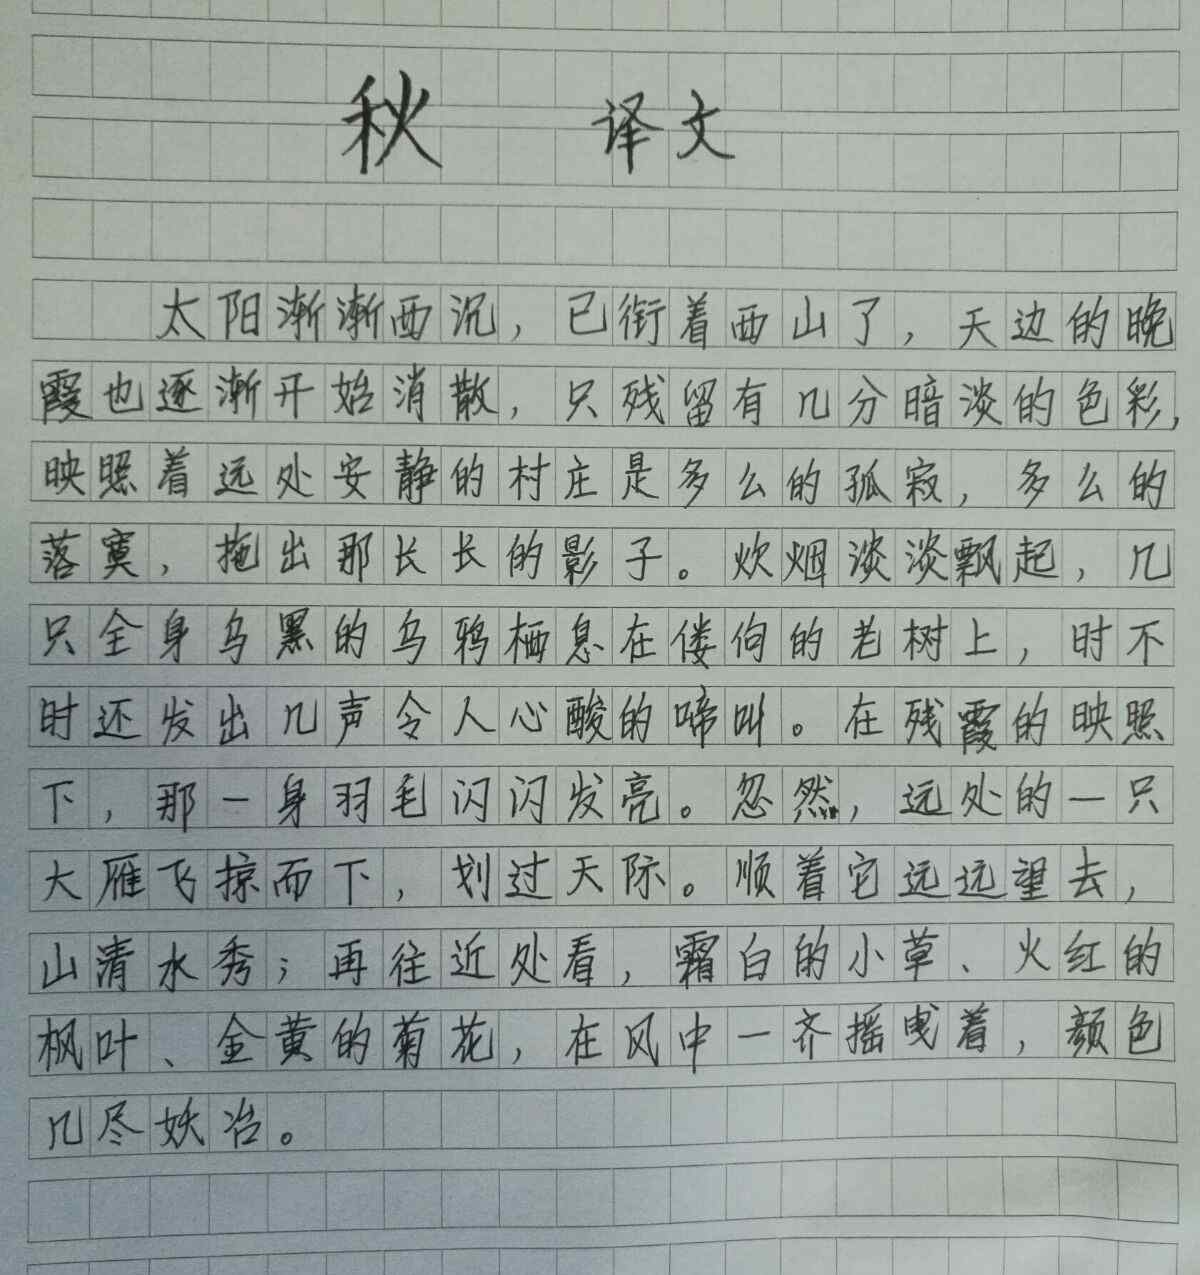 秋 译文
太阳渐渐西沉，已衔着西山了，天边的晚
霞也逐渐开始消散，只残留有几分暗淡的色彩，
映照着远处安静的村庄是多么的孤寂，多么的
落寞，拖出那长长的影子。炊烟淡淡飘起，几
只全身乌黑的乌鸦栖息在偻佝的老树上，时不
时还发出几声令人心酸的啼叫。在残霞的映照
下，那一身羽毛闪闪发亮。忽然，远处的一只
大雁飞掠而下，划过天际。顺着它远远望去，
山清水秀；再往近处看，霜白的小草、火红的
枫叶、金黄的菊花，在风中一齐摇曳着，颜色
几尽妖冶。